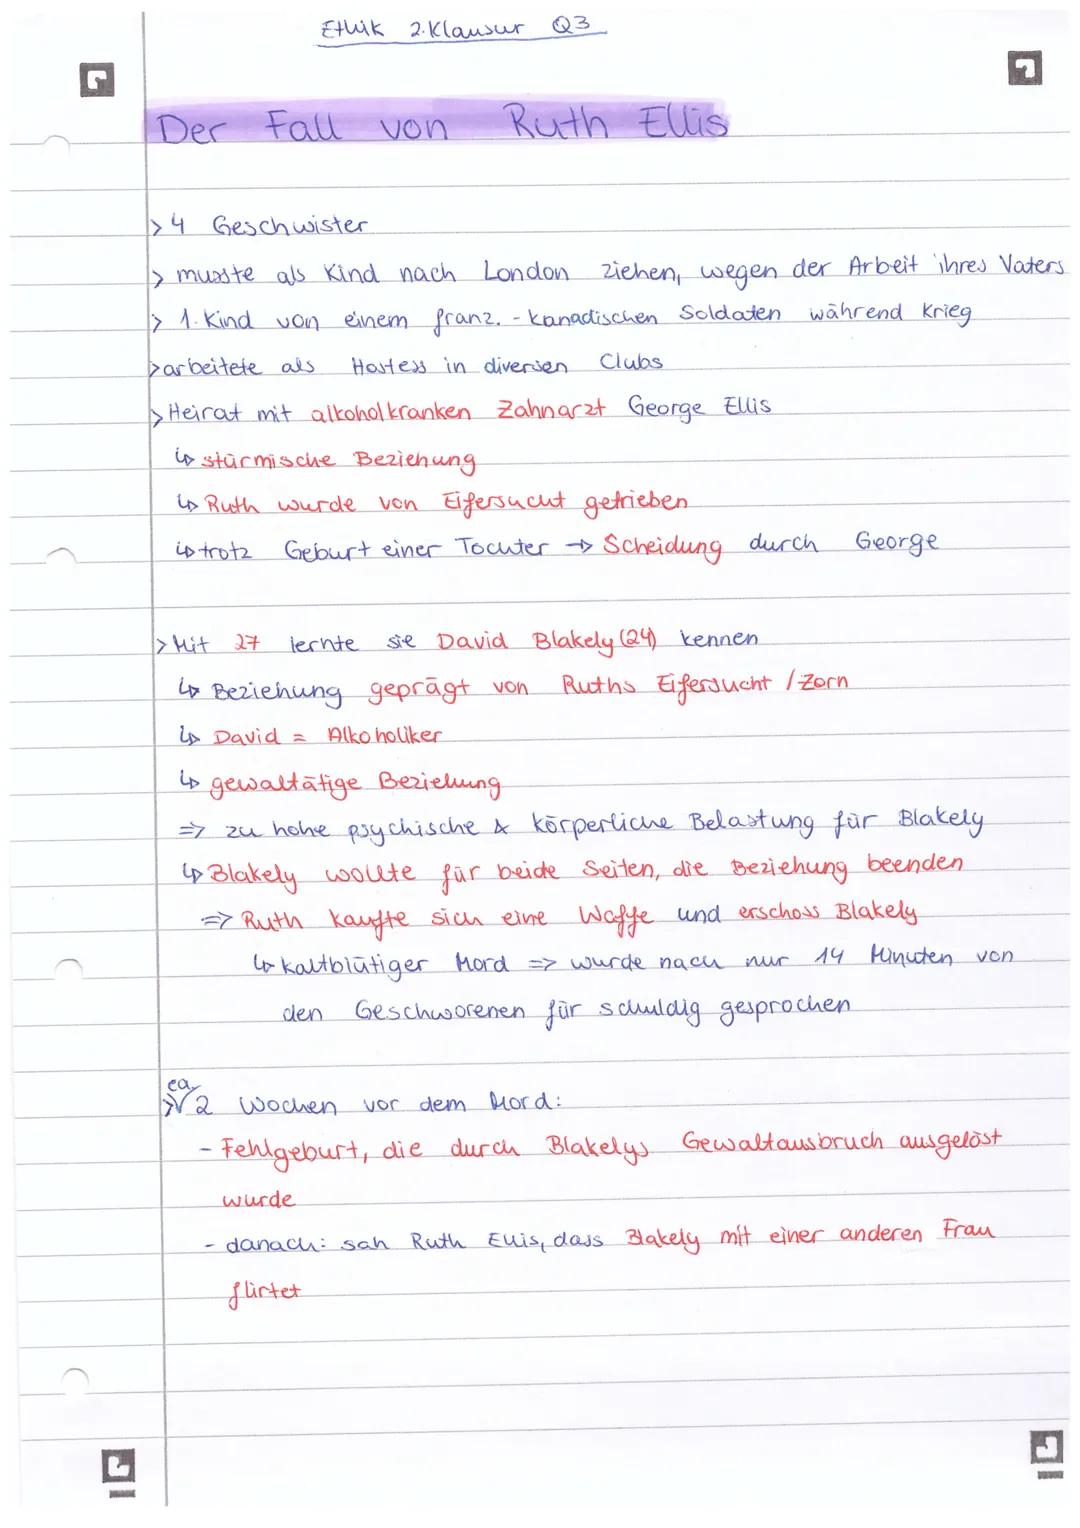 Ethik 2. Klausur Q3
Der Fall von Ruth Ellis
> 4 Geschwister
> musste als Kind nach London ziehen, wegen der Arbeit ihres Vaters
> 1. Kind von einem franz. - kanadischen Soldaten während Krieg
> arbeitete als Hostess in diversen Clubs
> Heirat mit alkoholkranken Zahnarzt George Ellis
↳ stürmische Beziehung
↳ Ruth wurde von Eifersucht getrieben
↳ trotz Geburt einer Tochter → Scheidung durch George
> Mit 27 lernte sie David Blakely (24) kennen
↳ Beziehung geprägt von Ruths Eifersucht / Zorn
↳ David = Alkoholiker
↳ gewaltätige Beziehung
=> zu hohe psychische & körperliche Belastung für Blakely
↳ Blakely wollte für beide Seiten, die Beziehung beenden
=> Ruth kaufte sich eine Waffe und erschoss Blakely
↳ kaltblütiger Mord => wurde nach nur 14 Minuten von
den Geschworenen für schuldig gesprochen
> ca. 2 Wochen vor dem Mord:
- Fehlgeburt, die durch Blakelys Gewaltausbruch ausgelöst
wurde
- danach: sah Ruth Ellis, dass Blakely mit einer anderen Frau
flirtet